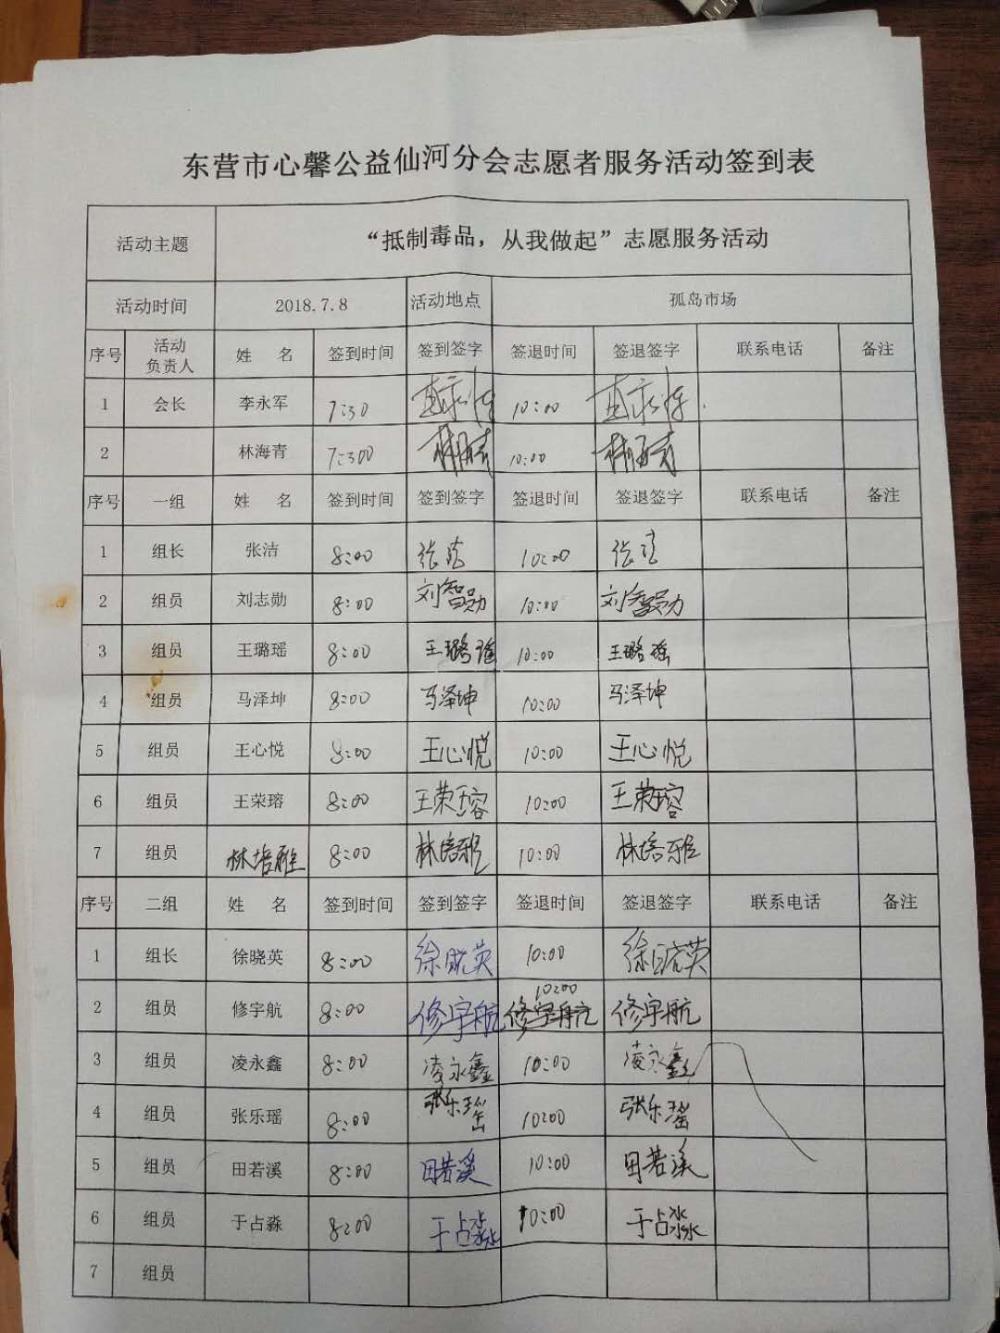 东营市心馨公益仙河分会志愿者服务活动签到表
活动主题 “抵制毒品，从我做起”志愿服务活动
活动时间 2018.7.8 活动地点 孤岛市场
序号 活动负责人 姓 名 签到时间 签到签字 签退时间 签退签字 联系电话 备注
1 会长 李永军 7:30 10:00
2 林海青 7:300 林海青 10:00 林海青
序号 一组 姓 名 签到时间 签到签字 签退时间 签退签字 联系电话 备注
1 组长 张洁 8:00 张洁 10:00 张洁
2 组员 刘志勋 8:00 刘智勋 10:00 刘智勋
3 组员 王璐瑶 8:00 王璐瑶 10:00 王璐瑶
4 组员 马泽坤 8:00 马泽坤 10:00 马泽坤
5 组员 王心悦 8:00 王心悦 10:00 王心悦
6 组员 王荣瑢 8:00 王荣瑢 10:00 王荣瑢
7 组员 林培雅 8:00 林培雅 10:00 林培雅
序号 二组 姓 名 签到时间 签到签字 签退时间 签退签字 联系电话 备注
1 组长 徐晓英 8:00 徐晓英 10:00 徐晓英
2 组员 修宇航 8:00 修宇航 10:00 修宇航 修宇航
3 组员 凌永鑫 8:00 凌永鑫 10:00 凌永鑫
4 组员 张乐瑶 8:00 张乐瑶 10:00 张乐瑶
5 组员 田若溪 8:00 田若溪 10:00 田若溪
6 组员 于占淼 8:00 于占淼 10:00 于占淼
7 组员